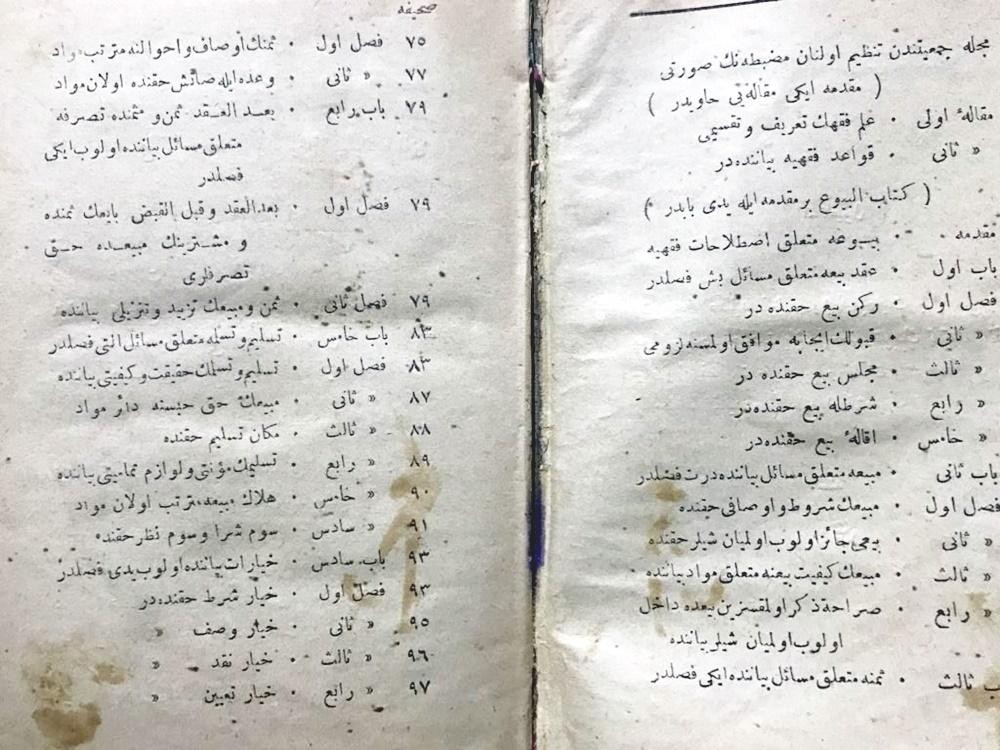 مجله جمعيتندن تنظيم اولنان مضبطه نك صورتى
( مقدمه ايكى مقاله يى حاويدر )
مقالهٔ اولى • علم فقهك تعريف و تقسيمى
« ثانى • قواعد فقهيه بياننده در
( كتاب البيوع بر مقدمه ايله يدى بابدر )
مقدمه • بيوعه متعلق اصطلاحات فقهيه
باب اول • عقد بيعه متعلق مسائل بش فصلدر
فصل اول • ركن بيع حقنده در
« ثانى • قبولك ايجابه موافق اولمسنه لزومى
« ثالث • مجلس بيع حقنده در
« رابع • شرطله بيع حقنده در
« خامس • اقالهٔ بيع حقنده در
باب ثانى • مبيعه متعلق مسائل بياننده درت فصلدر
فصل اول • مبيعك شروط و اوصافى حقنده
« ثانى • بيعى جائز اولوب اولميان شيلر حقنده
« ثالث • مبيعك كيفيت بيعنه متعلق مواد بياننده
« رابع • صراحة ذكر اولمقسزين بيعده داخل
اولوب اولميان شيلر بياننده
باب ثالث • ثمنه متعلق مسائل بياننده ايكى فصلدر
صحيفه
٧٥ فصل اول • ثمنك اوصاف و احوالنه مترتب مواد
٧٧ « ثانى • وعده ايله صاتش حقنده اولان مواد
٧٩ باب رابع • بعد العقد ثمن و مثمنده تصرفه
متعلق مسائل بياننده اولوب ايكى
فصلدر
٧٩ فصل اول • بعد العقد و قبل القبض بايعك ثمنده
و مشترينك مبيعده حق
تصرفلرى
٧٩ فصل ثانى • ثمن و مبيعك تزييد و تنزيلى بياننده
٨٣ باب خامس • تسليم و تسلمه متعلق مسائل التى فصلدر
٨٣ فصل اول • تسليم و تسلمك حقيقت و كيفيتى بياننده
٨٧ « ثانى • مبيعك حق حبسنه دائر مواد
٨٨ « ثالث • مكان تسليم حقنده
٨٩ « رابع • تسليمك مؤنتى و لوازم تماميتى بياننده
٩٠ « خامس • هلاك مبيعه مترتب اولان مواد
٩١ « سادس • سوم شرا و سوم نظر حقنده
٩٣ باب سادس • خيارات بياننده اولوب يدى فصلدر
٩٣ فصل اول • خيار شرط حقنده در
٩٥ « ثانى • خيار وصف «
٩٦ « ثالث • خيار نقد «
٩٧ « رابع • خيار تعيين «